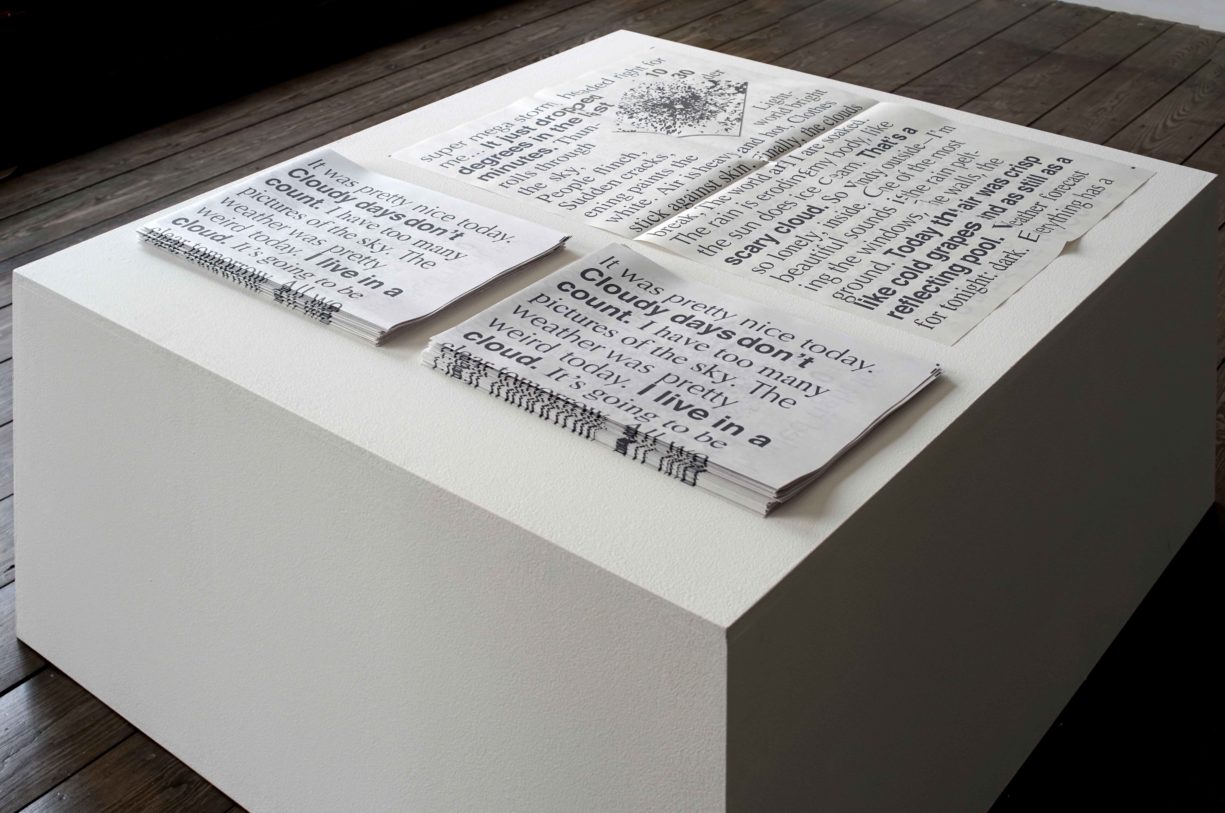 It was pretty nice today.
Cloudy days don't
count. I have too many
pictures of the sky. The
Weather was pretty
weird today. I live in a
cloud. It's going to be
It was pretty nice today.
Cloudy days don't
count. I have too many
pictures of the sky. The
Weather was pretty
weird today. I live in a
cloud. It's going to be
super mega storm headed right for
me. It just dropped 10
degrees in the last 20
minutes.
rolls through
the sky.
People flinch,
Sudden cracks,
Light-
ening paints the
world bright
white. Air is heavy and hot. Clothes
stick against skin.
finally, the clouds
break, the world and I are soaked.
The rain is every body like
the sun does
That's a
scary cloud. So
outside—I'm
so lonely, inside.
of the most
beautiful sounds is the rain pelt-
ing the windows, the walls, the
ground. Today the air was crisp
like cold grapes and as still as a
reflecting pool. Weather forecast
for tonight: dark. Everything has a